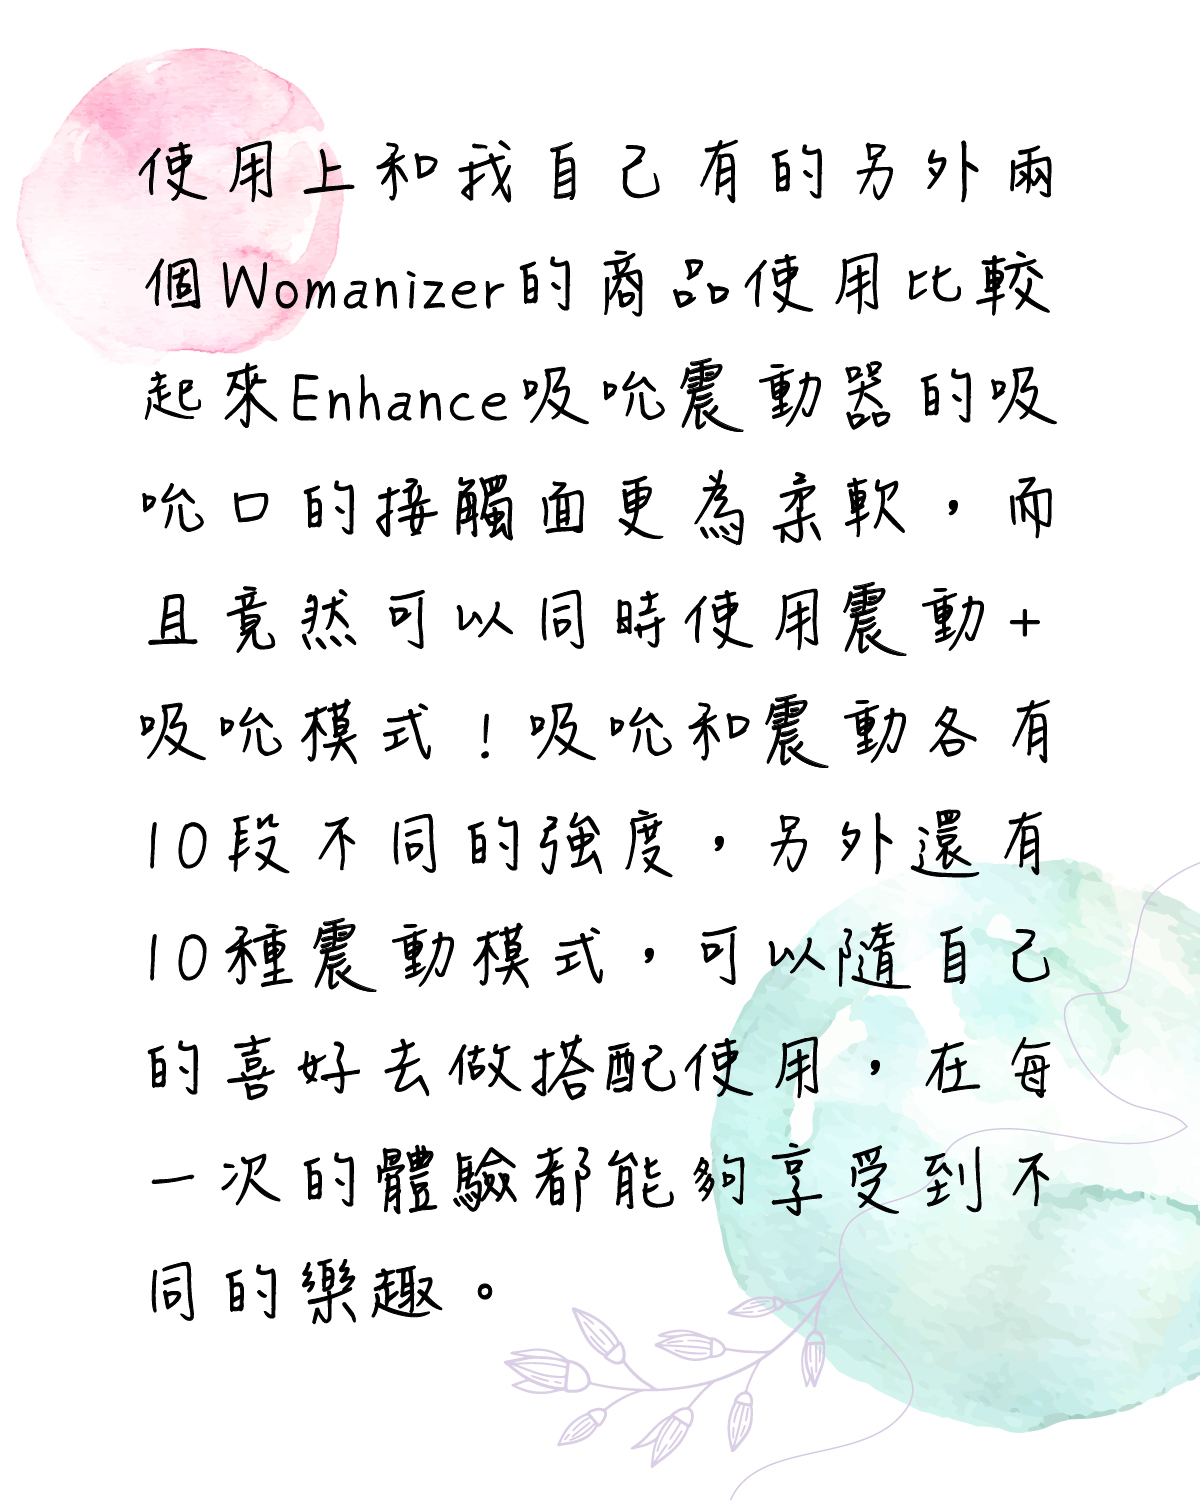 使用上和我自己有的另外兩
個Womanizer的商品使用比較
起來Enhance吸吮震動器的吸
吮口的接觸面更為柔軟，而
且竟然可以同時使用震動+
吸吮模式！吸吮和震動各有
10段不同的強度，另外還有
10種震動模式，可以隨自己
的喜好去做搭配使用，在每
一次的體驗都能夠享受到不
同的樂趣。